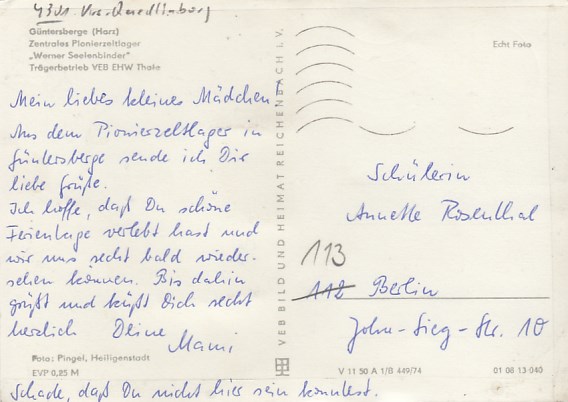 4301 Krs. Quedlinburg
Güntersberge (Harz)
Zentrales Pionierzeltlager
„Werner Seelenbinder"
Trägerbetrieb VEB EHW Thale
Mein liebes kleines Mädchen!
Aus dem Pionierzeltlager in
Güntersberge sende ich Dir
liebe Grüße.
Ich hoffe, daß Du schöne
Ferientage verlebt hast und
wir uns recht bald wieder-
sehen können. Bis dahin
grüßt und küßt Dich recht
herzlich Deine
Mami
Foto: Pingel, Heiligenstadt
EVP 0,25 M
Schade, daß Du nicht hier sein konntest.
VEB BILD UND HEIMAT REICHENBACH I. V.
Echt Foto
Schülerin
Annette Rosenthal
113
112 Berlin
John-Sieg-Str. 10
V 11 50 A 1/B 449/74
01 08 13 040